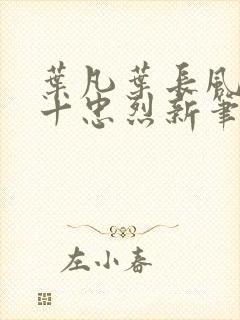 葉凡葉長風
十忠烈新筆
左小春